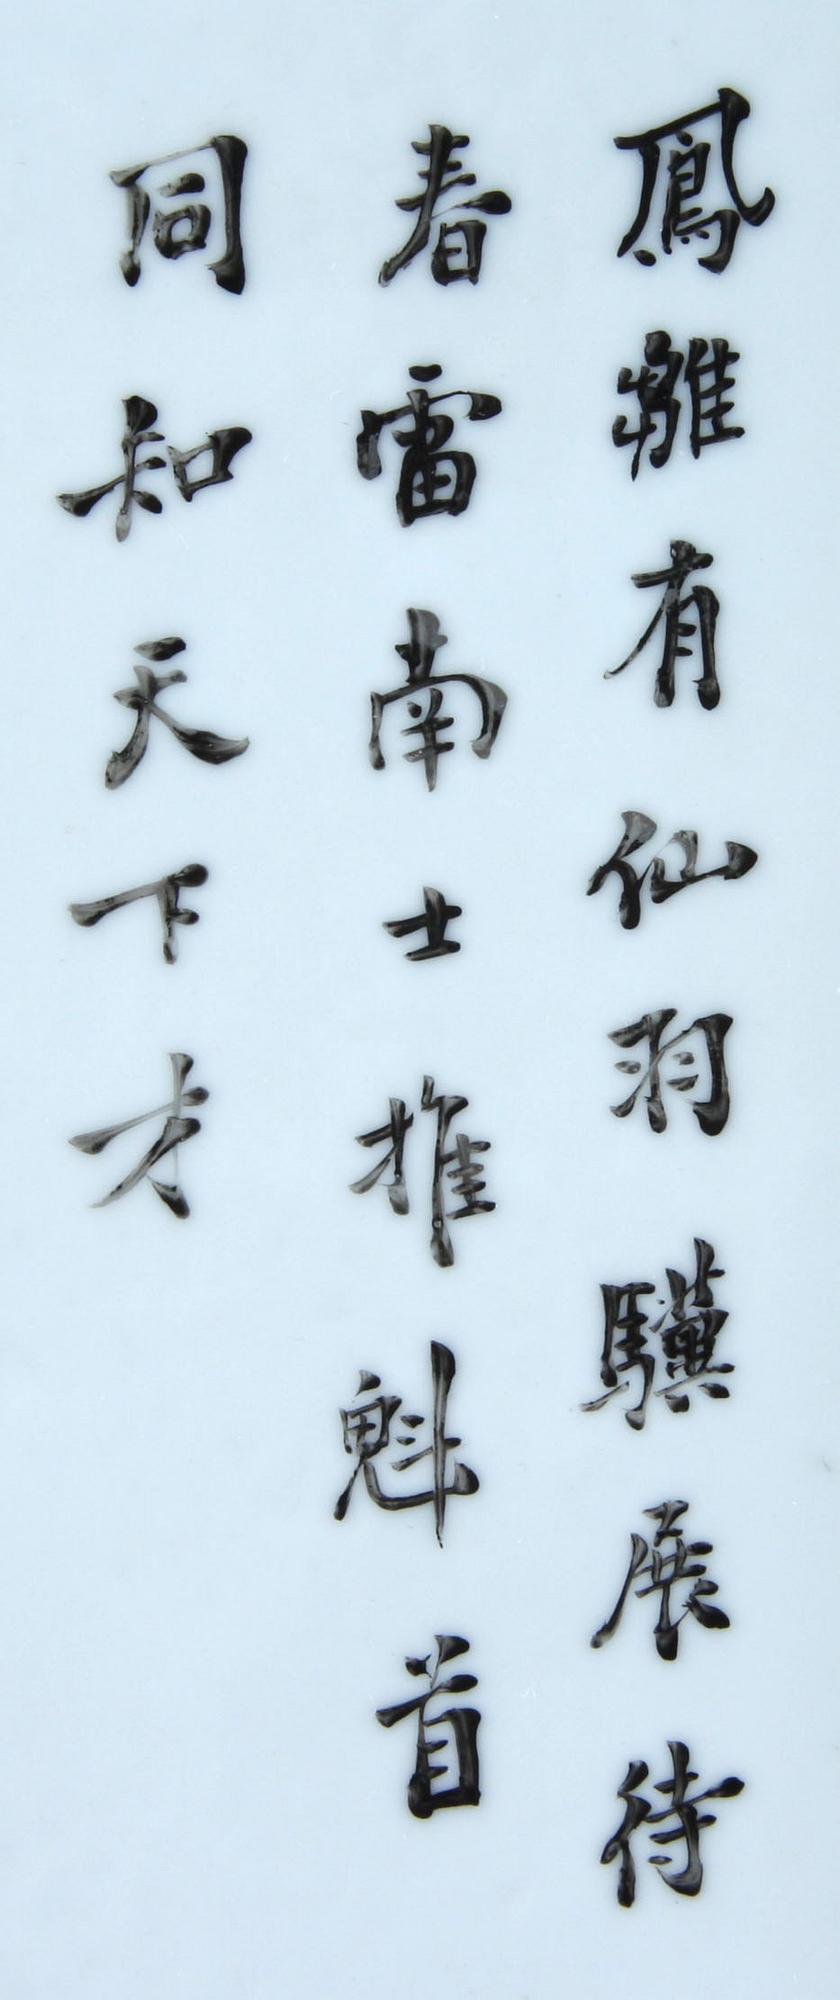 鳳雛有仙羽驥展待
春雷南士推魁首
同知天下才